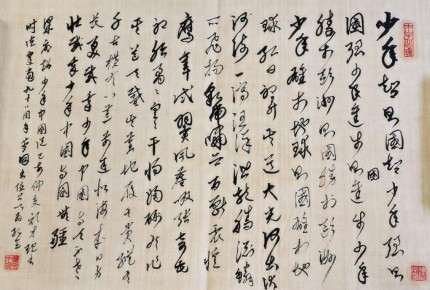 少年智则國智少年强则
國强少年进步则国进步少年
胜于欧洲则國胜于欧洲
少年雄于地球则國雄于地
球红日初升其道大光河出伏
流一泻汪洋潜龙腾渊鳞
爪飞扬乳虎啸谷百兽震惶
鹰隼试翼风尘吸张奇花
初胎矞矞皇皇干将发硎有作
其芒天戴其苍地履其黄纵有
千古横有八荒前途似海来日方
长美哉我少年中国与天不老
壮哉我少年中国与国无疆
梁启超少年中国说